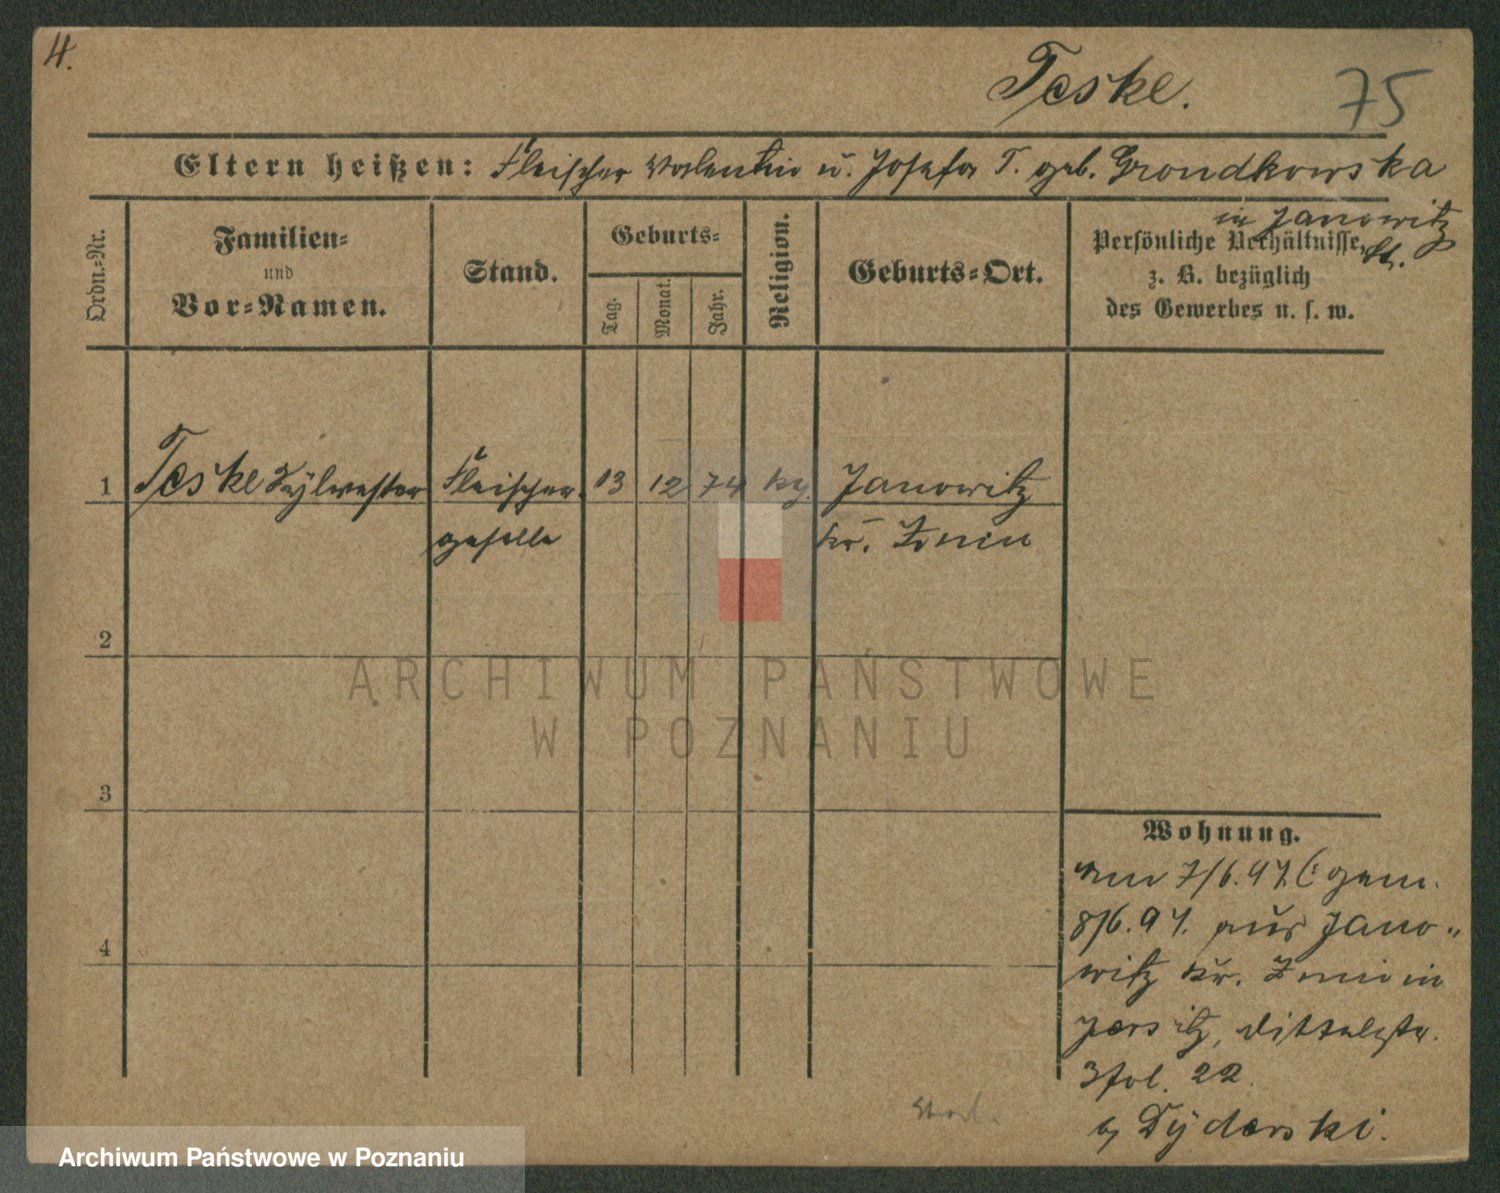 4.
Teske.
75
Eltern heißen: Fleischer Valentin u. Josefa T. geb. Grondkowska
in Janowitz
Ordn.-Nr.
Familien-
und
Vor-Namen.
Stand.
Geburts-
Tag.
Monat.
Jahr.
Religion.
Geburts-Ort.
Persönliche Verhältnisse,
z. B. bezüglich
des Gewerbes u. s. w.
1 Teske Sylvester Fleischer 13 12 74 Janowitz
geselle Kr. Znin
2
ARCHIWUM PAŃSTWOWE
W POZNANIU
3
Wohnung.
7/6.97 (: gem.
8/6.97. aus Jano-
4
witz Kr. Znin in
Jersitz,
22.
b. Dyderski.
Archiwum Państwowe w Poznaniu